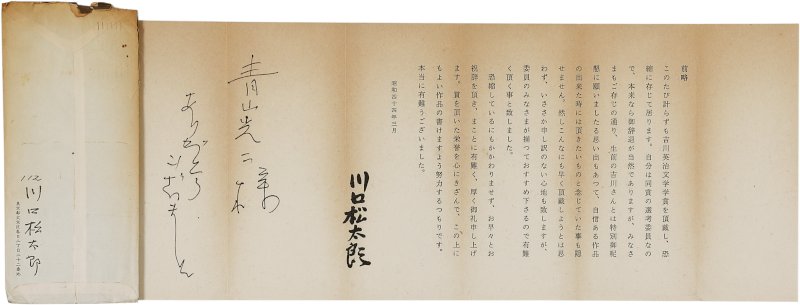 前略
このたび計らずも吉川英治文学賞を頂戴し、恐
縮に存じて居ります。自分は同賞の選考委員なの
で、本来なら御辞退が当然でありますが、みなさ
まもご存じの通り、生前の吉川さんとは特別御昵
懇に願いましたる思い出もあつて、自信ある作品
の出来た時には頂きたいものと念じていた事も隠
せません。然しこんなにも早く頂戴しようとは思
わず、いささか申し訳のない心地も致しますが、
委員のみなさまが揃つておすすめ下さるので有難
く頂く事と致しました。
恐縮しているにもかかわりませず、お早々とお
祝辞を頂き、まことに有難く、厚く御礼申し上げ
ます。賞を頂いた栄誉を心にきざんで、この上に
もよい作品の書けますよう努力するつもりです。
本当に有難うございました。
昭和四十四年三月
川口松太郎
青山光二様
ありがとう
112
川口松太郎